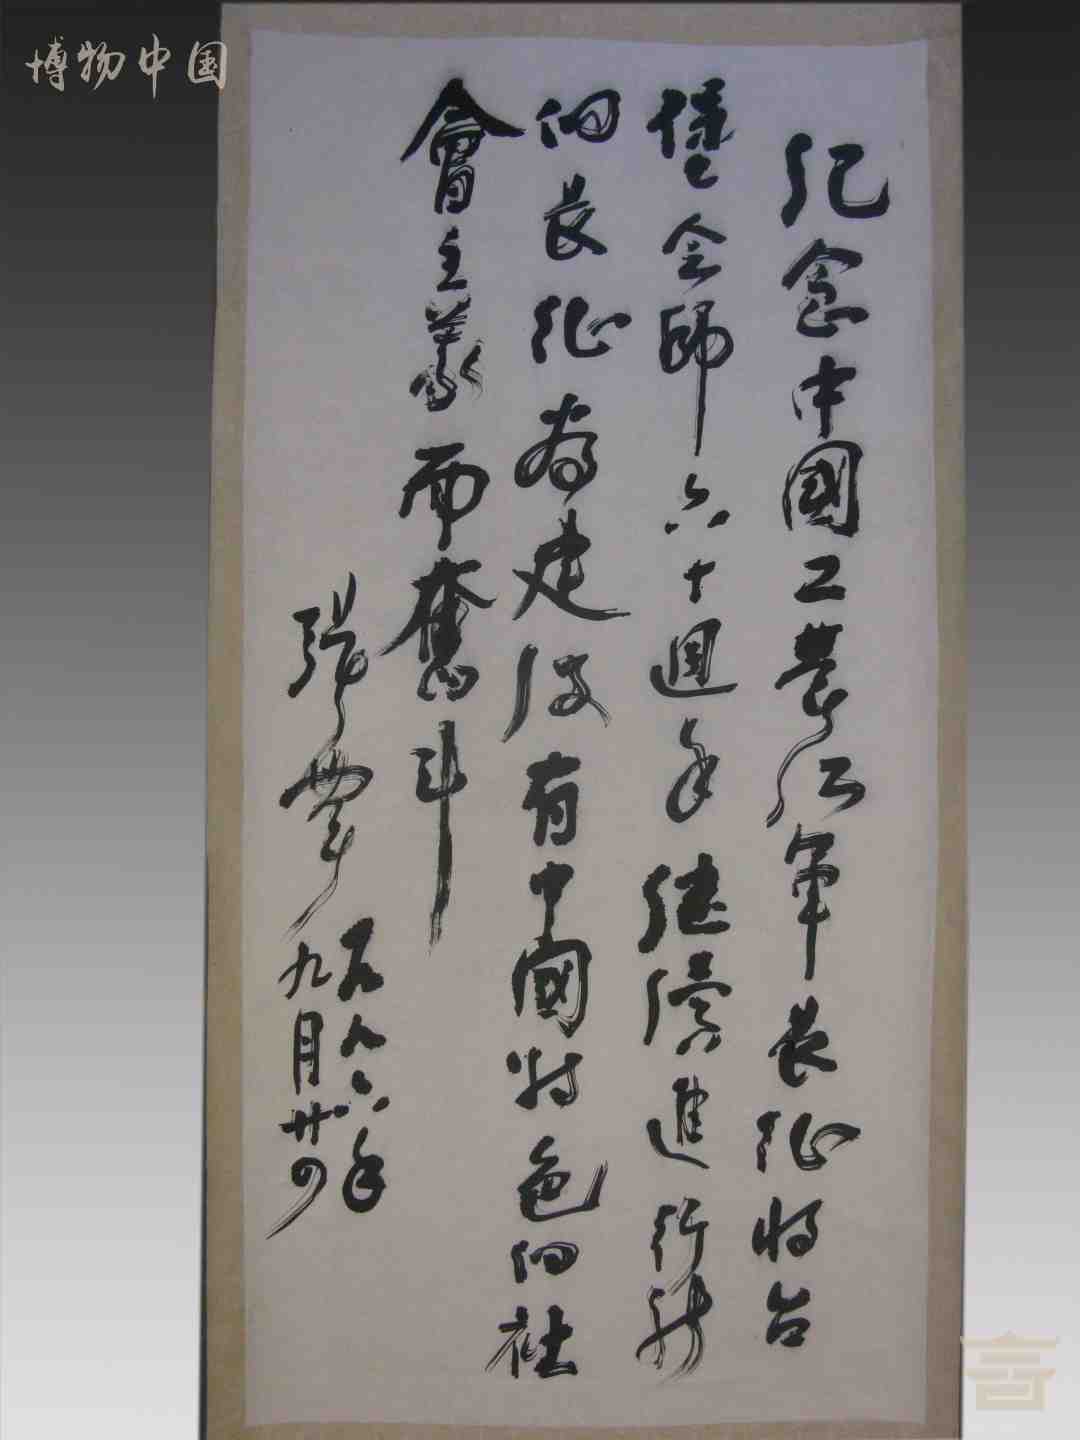 博物中国
紀念中國工農紅軍長征将台
堡会師六十週年繼續進行新
的長征為建设有中國特色的社
會主義而奮斗
張
一九九六年
九月廿